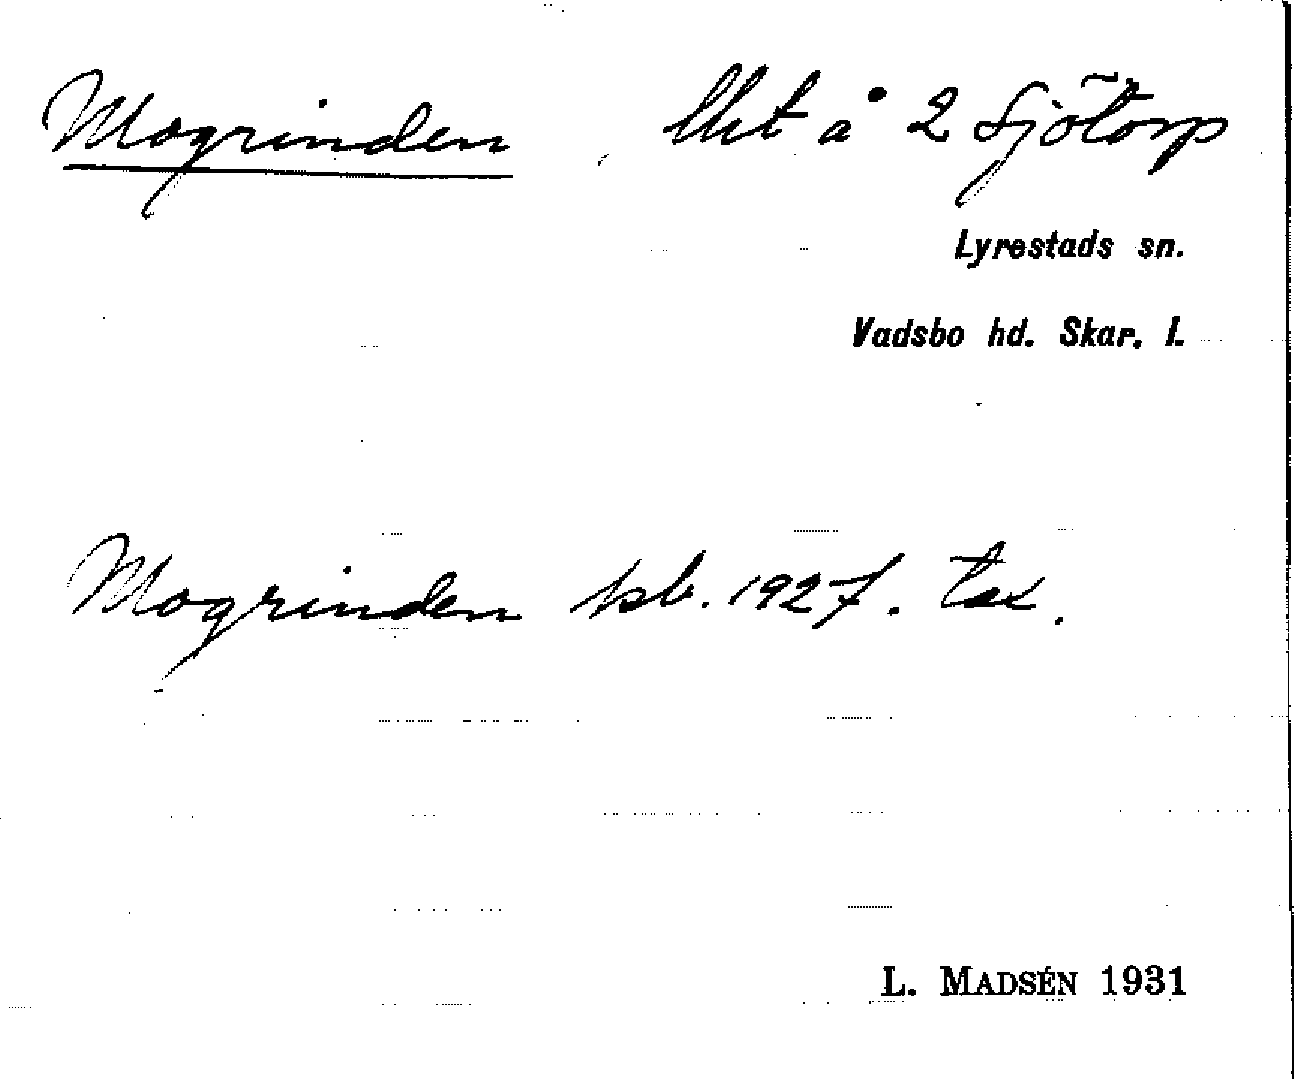 Mogrinden lht å 2 Sjötorp
Lyrestads sn.
Vadsbo hd. Skar. l.
Mogrinden psb. 1927. tax.
L. MADSÉN 1931